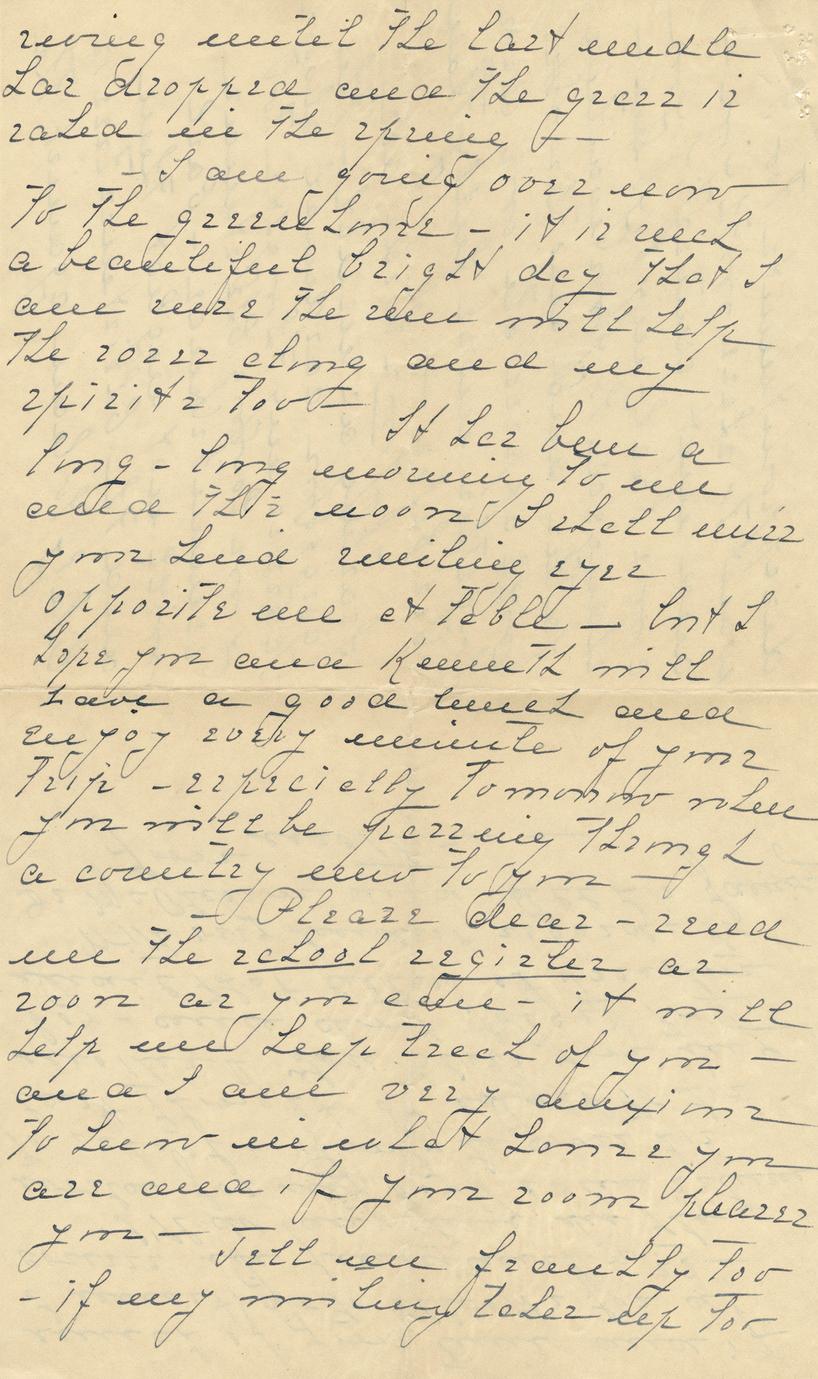 until the last needle
has dropped and the grass is
raked in the spring —
— I am going over now
to the greenhouse — it is such
a beautiful bright day that I
am sure the sun will help
the roses along and my
spirits too —
It has been a
long - long morning to me
and this noon I shall miss
your kind smiling eyes
opposite me at table — but I
hope you and Kenneth will
have a good lunch and
enjoy every minute of your
trip - especially tomorrow when
you will be passing through
a country new to you —
— Please dear - send
me the school register as
soon as you can - it will
help me keep track of you —
and I am very anxious
to know in what house you
are and if your room pleases
you — Tell me frankly too
- if my writing takes up too